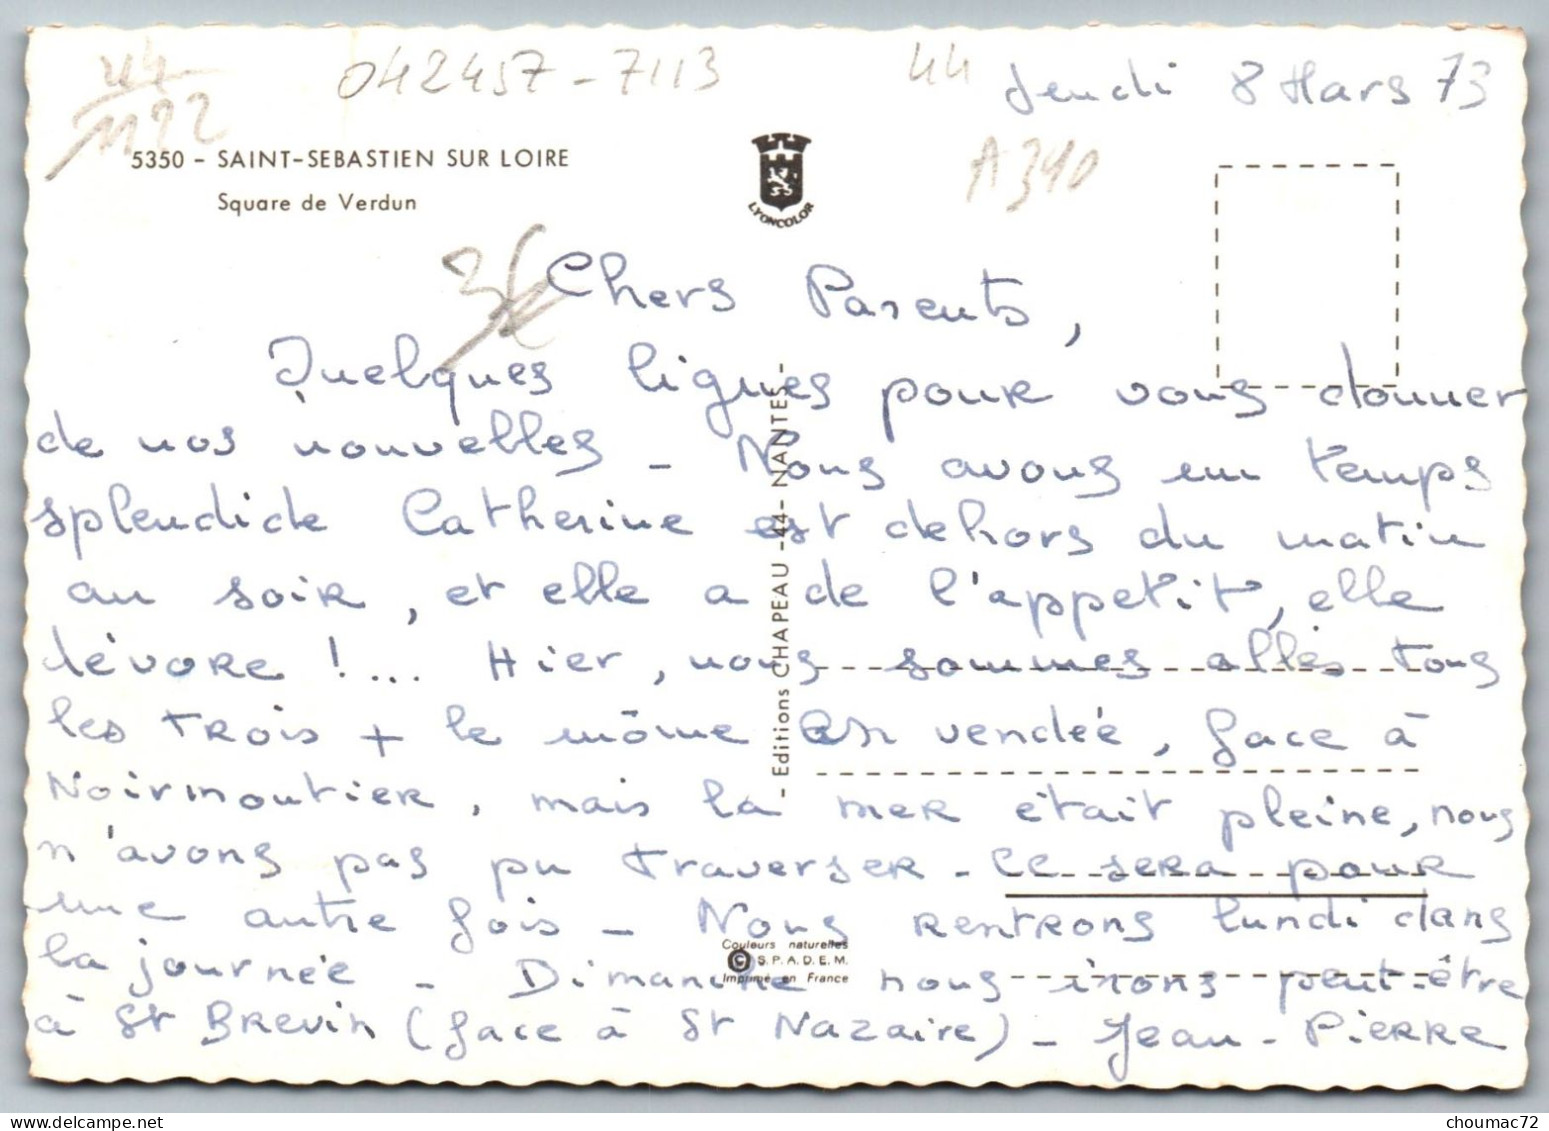 44
1122
042457-7113
44
Jeudi 8 Mars 73
A340
5350 - SAINT-SEBASTIEN SUR LOIRE
Square de Verdun
LYONCOLOR
3€
Chers Parents,
Quelques lignes pour vous donner
de nos nouvelles _ Nous avons un temps
splendide Catherine est dehors du matin
au soir, et elle a de l'appetit, elle
dévore !... Hier, nous sommes allés tous
les trois + le môme en vendée, face à
Noirmoutier, mais la mer était pleine, nous
n'avons pas pu traverser - ce sera pour
une autre fois _ Nous rentrons lundi dans
la journée _ Dimanche nous irons peut-être
à St Brevin (face à St Nazaire) _ Jean-Pierre
- Editions CHAPEAU -44- NANTES -
Couleurs naturelles
© S.P.A.D.E.M.
Imprimé en France
choumac72